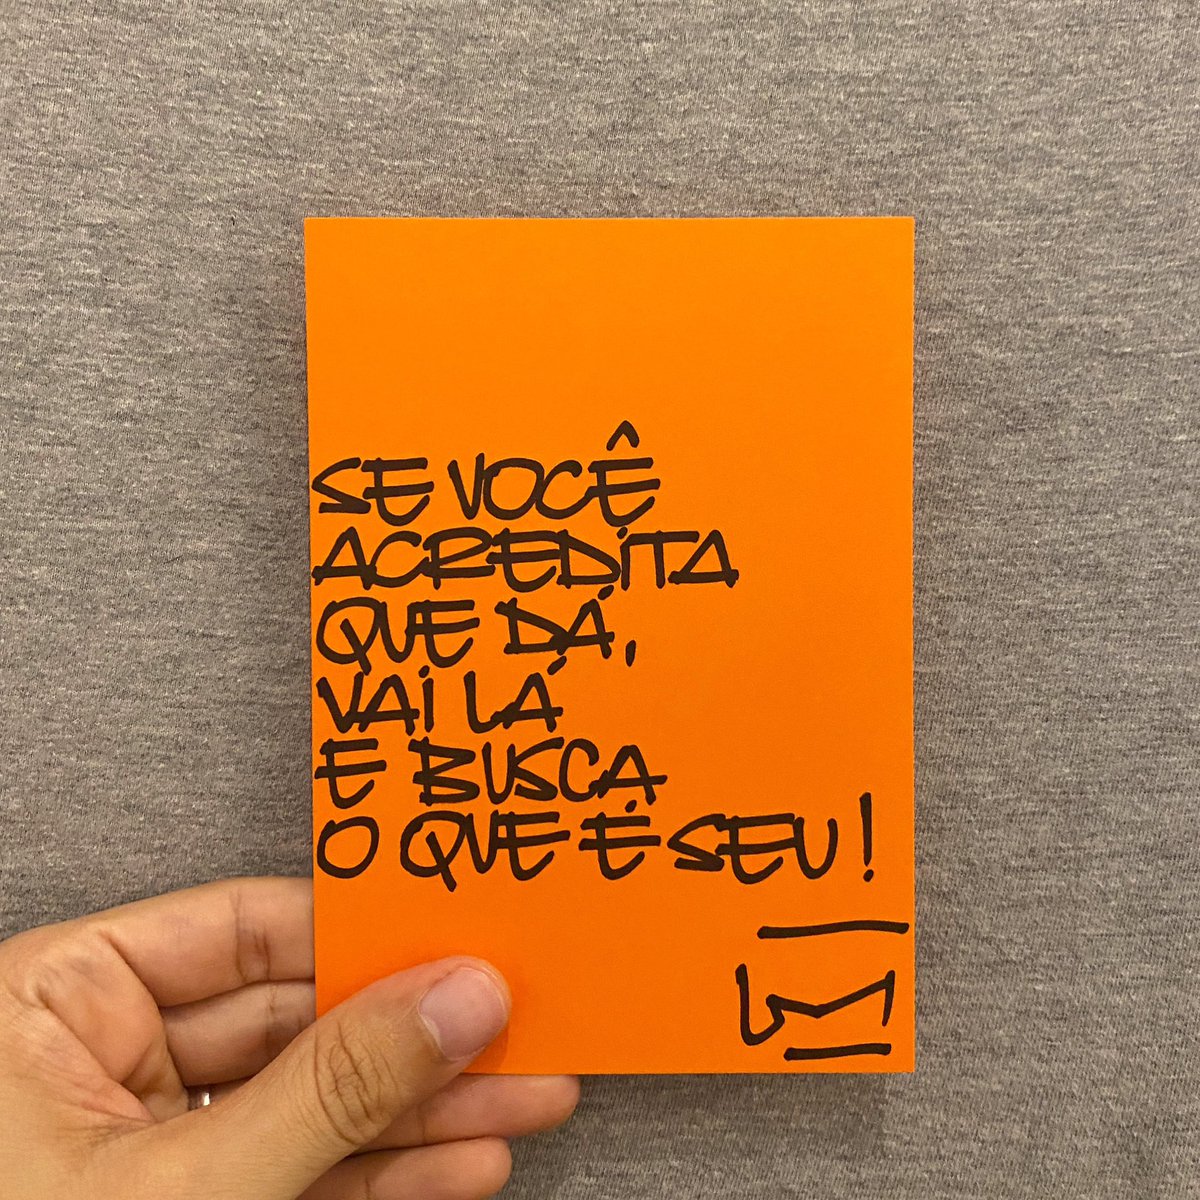 SE VOCÊ
ACREDITA
QUE DÁ,
VAI LÁ
E BUSCA
O QUE É SEU!